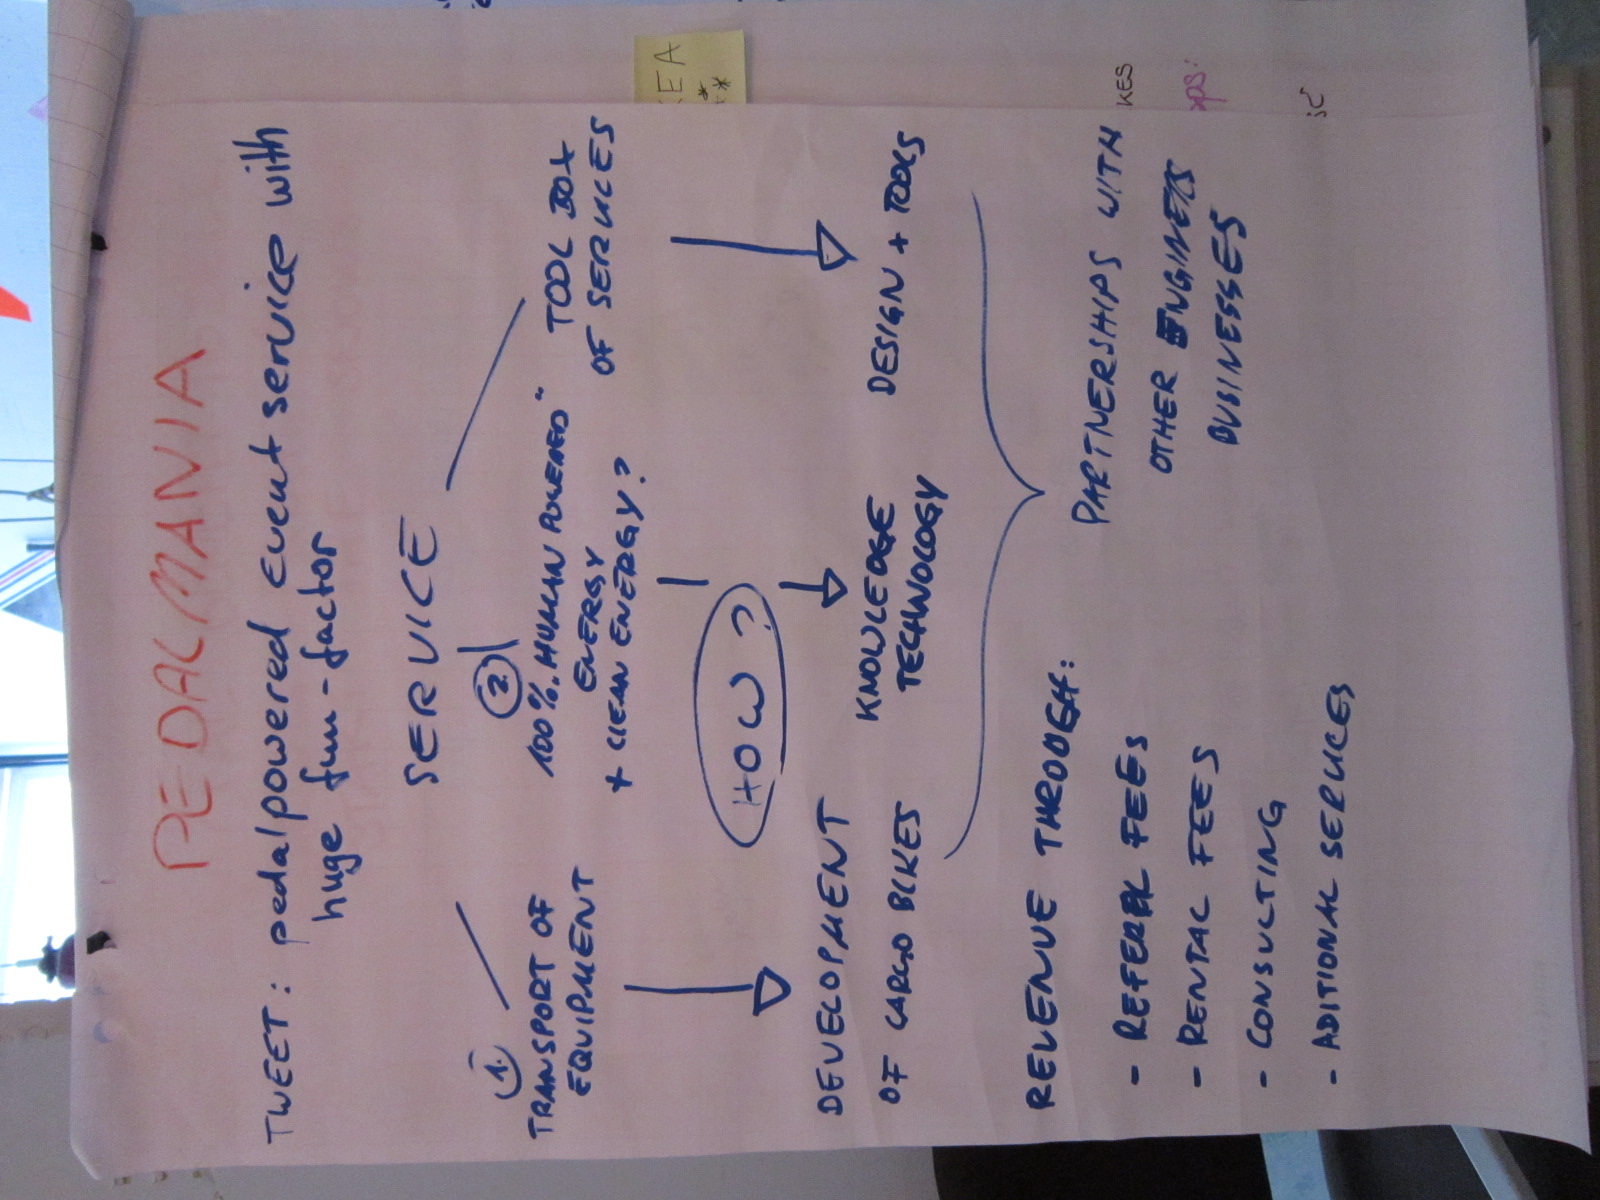 PEDALMANIA
TWEET: pedalpowered event service with
huge fun-factor
SERVICE
1.
TRANSPORT OF
EQUIPMENT
2.
100% „HUMAN POWERED"
ENERGY
+ CLEAN ENERGY?
TOOL BOX
OF SERVICES
HOW?
DEVELOPMENT
OF CARGO BIKES
KNOWLEDGE
TECHNOLOGY
DESIGN + TOOLS
REVENUE THROUGH:
- REFERAL FEES
- RENTAL FEES
- CONSULTING
- ADITIONAL SERVICES
PARTNERSHIPS WITH
OTHER
BUSINESSES
KES